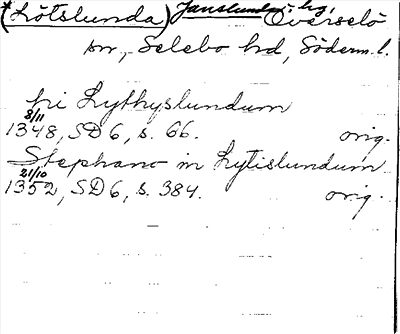 *(Lötslunda) Janslunda, hg, Överselö
sn, Selebo hd, Söderm.l.
pri Lythyslundum
8/11
1348, SD 6, s. 66. orig.
Stephano in Lytislundum
21/10
1352, SD 6, s. 384. orig.